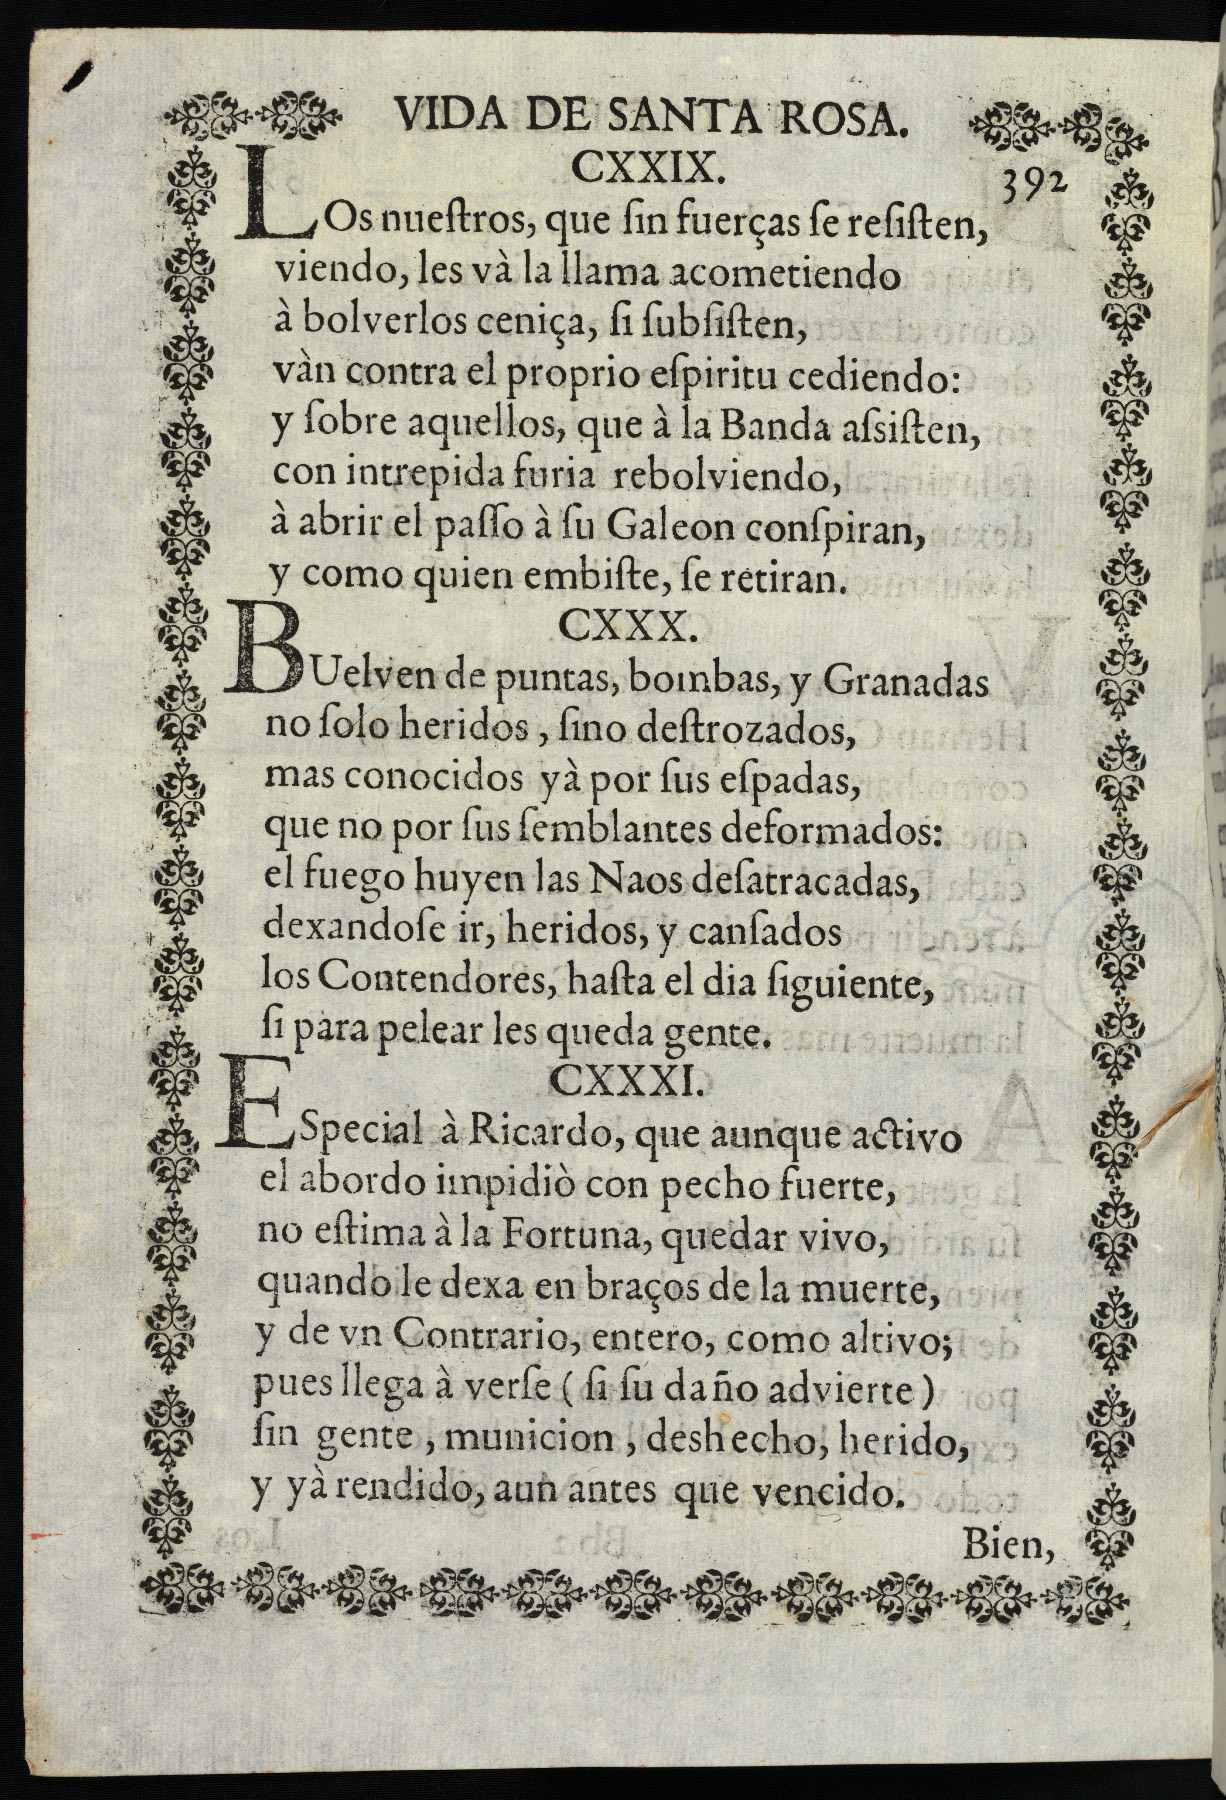 VIDA DE SANTA ROSA.
CXXIX.
392
LOs nueſtros, que ſin fuerças ſe reſiſten,
viendo, les và la llama acometiendo
à bolverlos ceniça, ſi ſubſiſten,
vàn contra el proprio eſpiritu cediendo:
y ſobre aquellos, que à la Banda aſsiſten,
con intrepida furia rebolviendo,
à abrir el paſſo à ſu Galeon conſpiran,
y como quien embiſte, ſe retiran.
CXXX.
BUelven de puntas, bombas, y Granadas
no ſolo heridos, ſino deſtrozados,
mas conocidos yà por ſus eſpadas,
que no por ſus ſemblantes deformados:
el fuego huyen las Naos deſatracadas,
dexandoſe ir, heridos, y canſados
los Contendores, haſta el dia ſiguiente,
ſi para pelear les queda gente.
CXXXI.
ESpecial à Ricardo, que aunque activo
el abordo impidiò con pecho fuerte,
no eſtima à la Fortuna, quedar vivo,
quando le dexa en braços de la muerte,
y de vn Contrario, entero, como altivo;
pues llega à verſe ( ſi ſu daño advierte )
ſin gente, municion, deshecho, herido,
y yà rendido, aun antes que vencido.
Bien,